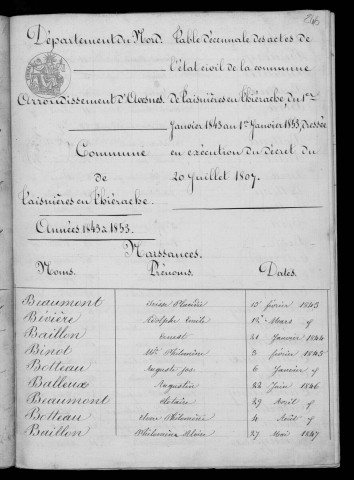 Département du Nord. Table décennale des actes de
l'état civil de la commune
Arrondissement d'Avesnes. de Taisnières en Thiérache, du 1er
Janvier 1843 au 1er Janvier 1853, dressée
Commune en exécution du décret du
de 20 Juillet 1807.
Taisnières en Thiérache.
Années 1843 à 1853.
Naissances.
Noms. Prénoms. Dates.
Beaumont février 1843
Bévière Adolphe Emile Mars
Baillon Ernest 21 Janvier 1844
Binot Mie Philomène 3 février 1845
Botteau Auguste jos. 6 Janvier
Balleux Augustin 22 Juin 1846
Beaumont 29 Avril
Botteau Philomène 4 Août
Baillon Philomène 27 Mai 1847